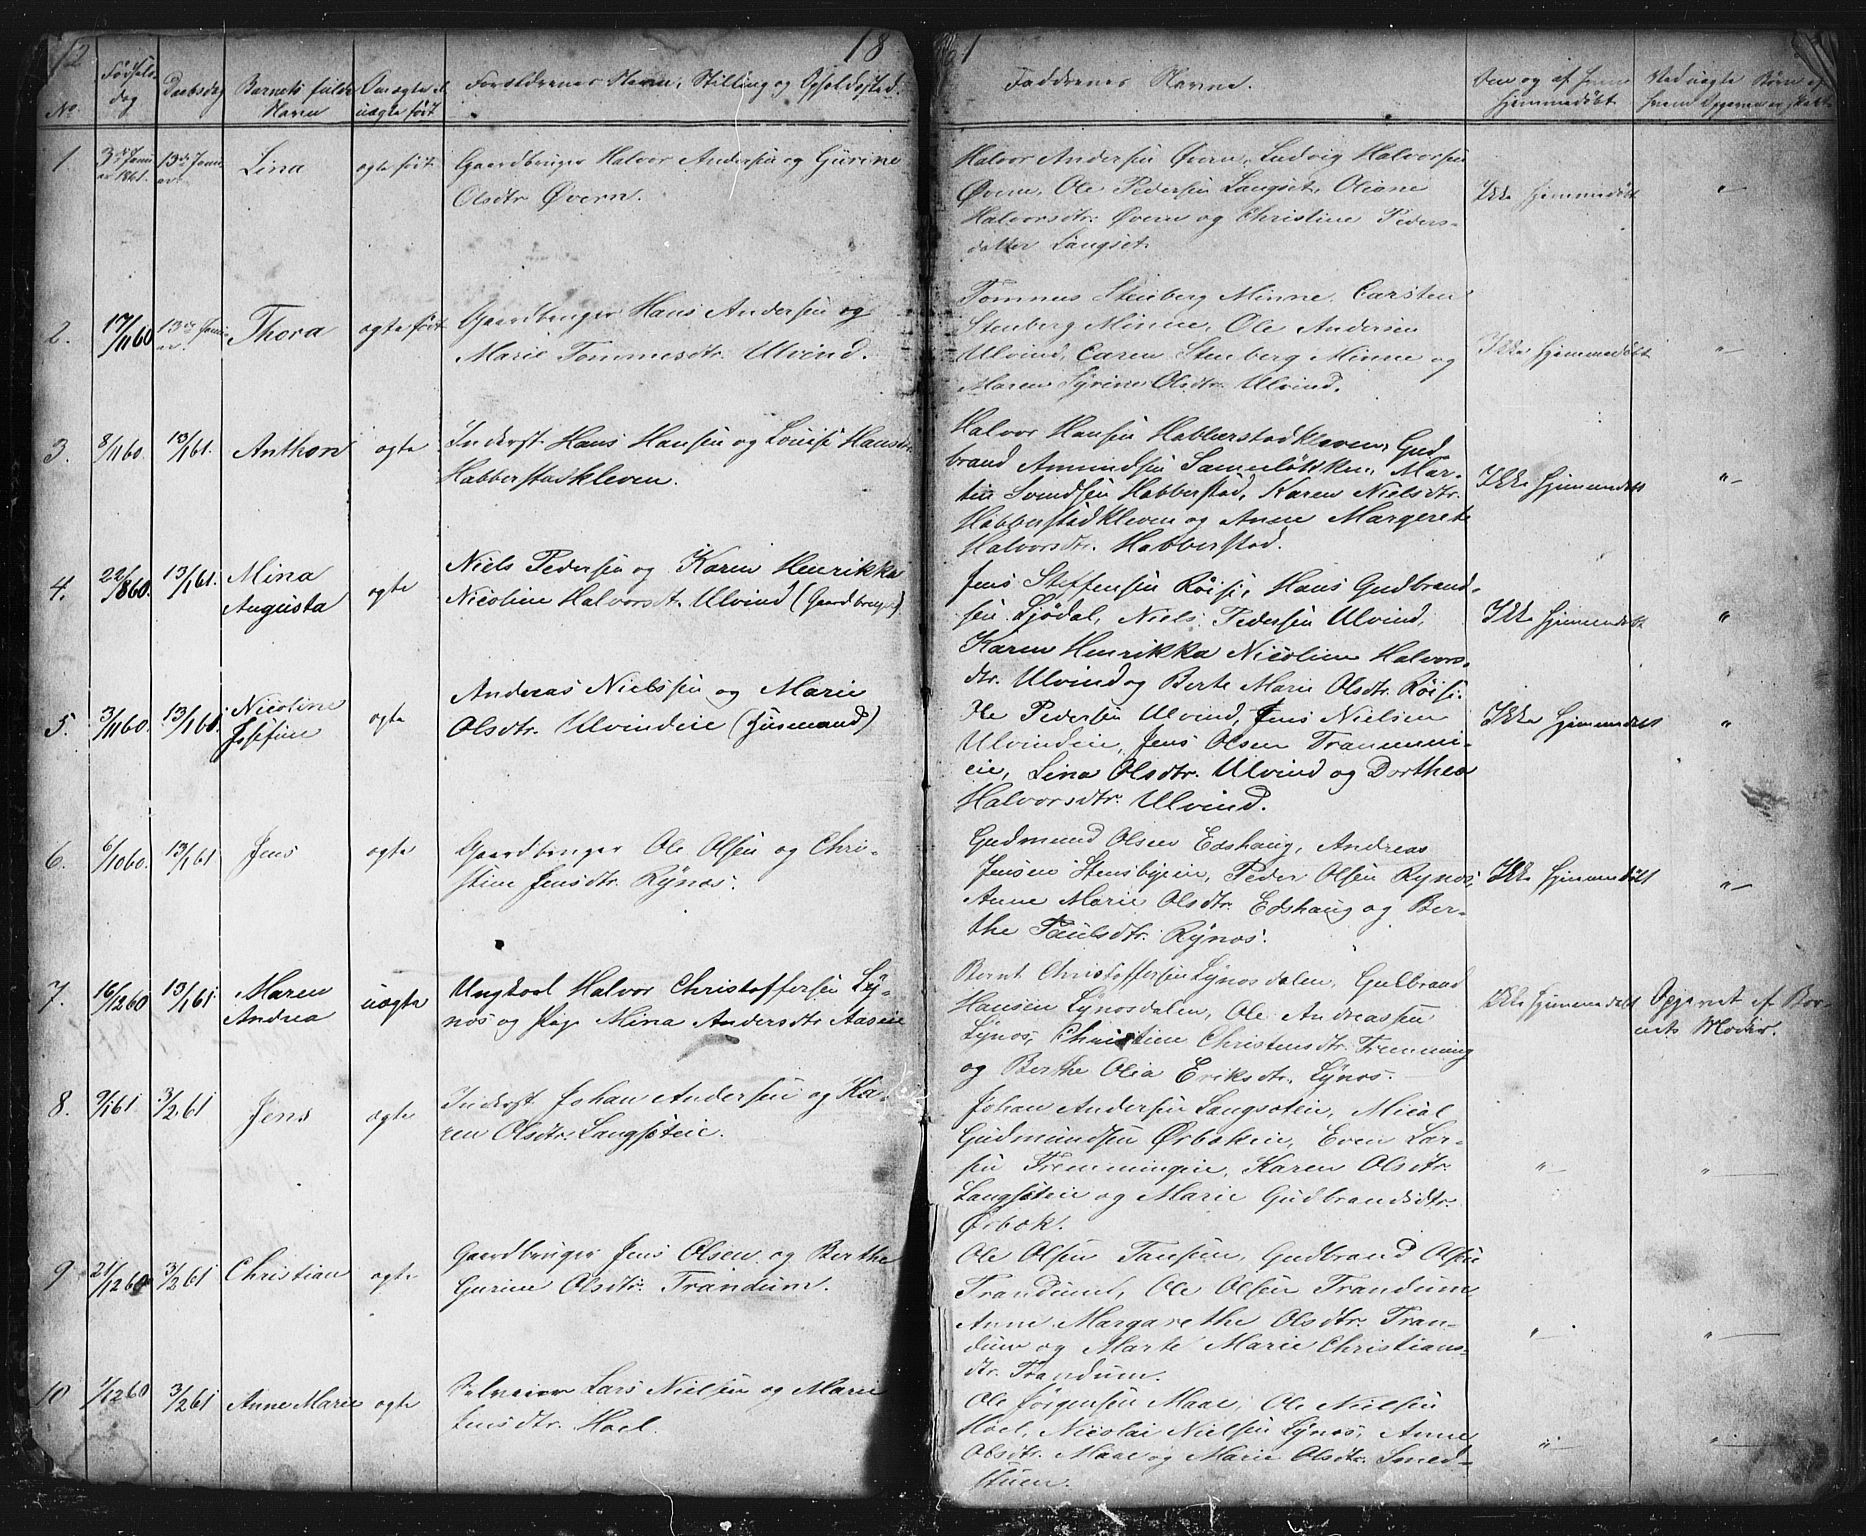 12
18
61
No.
Fødsels-
dag
Daabsdag
Barnets fulde
Navn
Om ægte el.
uægte født
Forældrenes Navn, Stilling og Opholdssted.
Faddernes Navne.
Om og af hvem
hjemmedøbt
Ved uægte Børn af
hvem Opgaven er skeet
1.
3die Janu-
ar 1861.
13de Janu-
ar
Lina
ægte født
Gaardbruger Halvor Andersen og Gurine
Olsdtr Øvern.
Halvor Andersen Øvern, Ludvig Halvorsen
Øvern, Ole Pedersen Langset, Oliane
Halvorsdtr. Øvern og Christine Peders-
datter Langset.
Ikke hjemmedøbt
"
2.
17/1160
13de Janu-
ar.
Thora
ægte født
Gaardbruger Hans Andersen og
Marie Tommesdtr. Ulvind.
Tommes Stenberg Minne, Carsten
Stenberg Minne, Ole Andersen
Ulvind, Caren Stenberg Minne og
Maren Syrine Olsdtr. Ulvind.
Ikke hjemmedøbt
"
3.
8/1160.
13/161.
Anthon
ægte
Inderst Hans Hansen og Lovise Hansdtr.
Habberstadkleven.
Halvor Hansen Habberstadkleven, Gud-
brand Amundsen Mar-
tin Svendsen Habberstad, Karen Nielsdtr.
Habberstadkleven og Anne Margrete
Halvorsdtr. Habberstad.
Ikke hjemmedøbt
"
4.
22/860.
13/161.
Mina
Augusta
ægte
Niels Pedersen og Karen Henrikka
Nicoline Halvorsdt. Ulvind (Gaardbruger)
Jens Steffensen Røise, Hans Gudbrand-
sen Sjødal, Niels Pedersen Ulvind,
Karen Henrikka Nicoline Halvors-
dtr. Ulvind og Berte Marie Olsdtr. Røise.
Ikke hjemmedøbt
"
5.
3/1160.
13/161.
Nicoline
Josefine
ægte
Andreas Nielssen og Marie
Olsdtr. Ulvindeie (Husmand)
Ole Pedersen Ulvind, Jens Nielsen
Ulvindeie, Jens Olsen
eie, Lina Olsdtr. Ulvind og Dorthea
Halvorsdtr. Ulvind.
Ikke hjemmedøbt
"
6.
6/1060.
13/161
Jens
ægte
Gaardbruger Ole Olsen og Chri-
stine Jensdtr. Rynos.
Gudmund Olsen Edshaug, Andreas
Jensen Stensbyeie, Peder Olsen Rynos,
Anne Marie Olsdtr. Edshaug og Ber-
the Paulsdtr. Rynos.
Ikke hjemmedøbt
"
7.
16/1260
13/161
Maren
Andrea
uægte
Ungkarl Halvor Christoffersen Ly-
nos og Pige Mina Andersdtr Aaseie
Bernt Christoffersen Lynosdalen, Gulbrand
Hansen Lynosdalen, Ole Andreassen
Lynos, Christine Christensdtr. Fremming
og Berthe Olea Eriksdtr. Lynos.
Ikke hjemmedøbt
Opgivet af Bar-
nets Moder.
8.
9/161
3/261
Jens
ægte
Inderst Johan Andersen og Ka-
ren Olsdtr. Langseteie.
Johan Andersen Langseteie, Mical
Gudmundsen Ørbækeie, Even Lar-
sen Fremmingeie, Karen Olsdtr.
Langseteie og Marie Gudbrandsdtr.
Ørbæk.
"
"
9
21/1260
3/261
Christian
ægte
Gaardbruger Jens Olsen og Berthe
Gurine Olsdtr. Trandum.
Ole Olsen Gudbrand Olsen
Trandum, Ole Olsen Trandum
Anne Margarethe Olsdtr. Tran-
dum og Marte Marie Christians-
dtr. Trandum.
"
"
10
1/1260
3/261
Anne Marie
ægte
Selveier Lars Nielsen og Marie
Jensdtr. Hoel.
Ole Jørgensen Maae, Ole Nielsen
Hoel, Nicolai Nielsen Lynos, Anne
Olsdtr. Maae og Marie Olsdtr. Smed-
stuen.
"
"